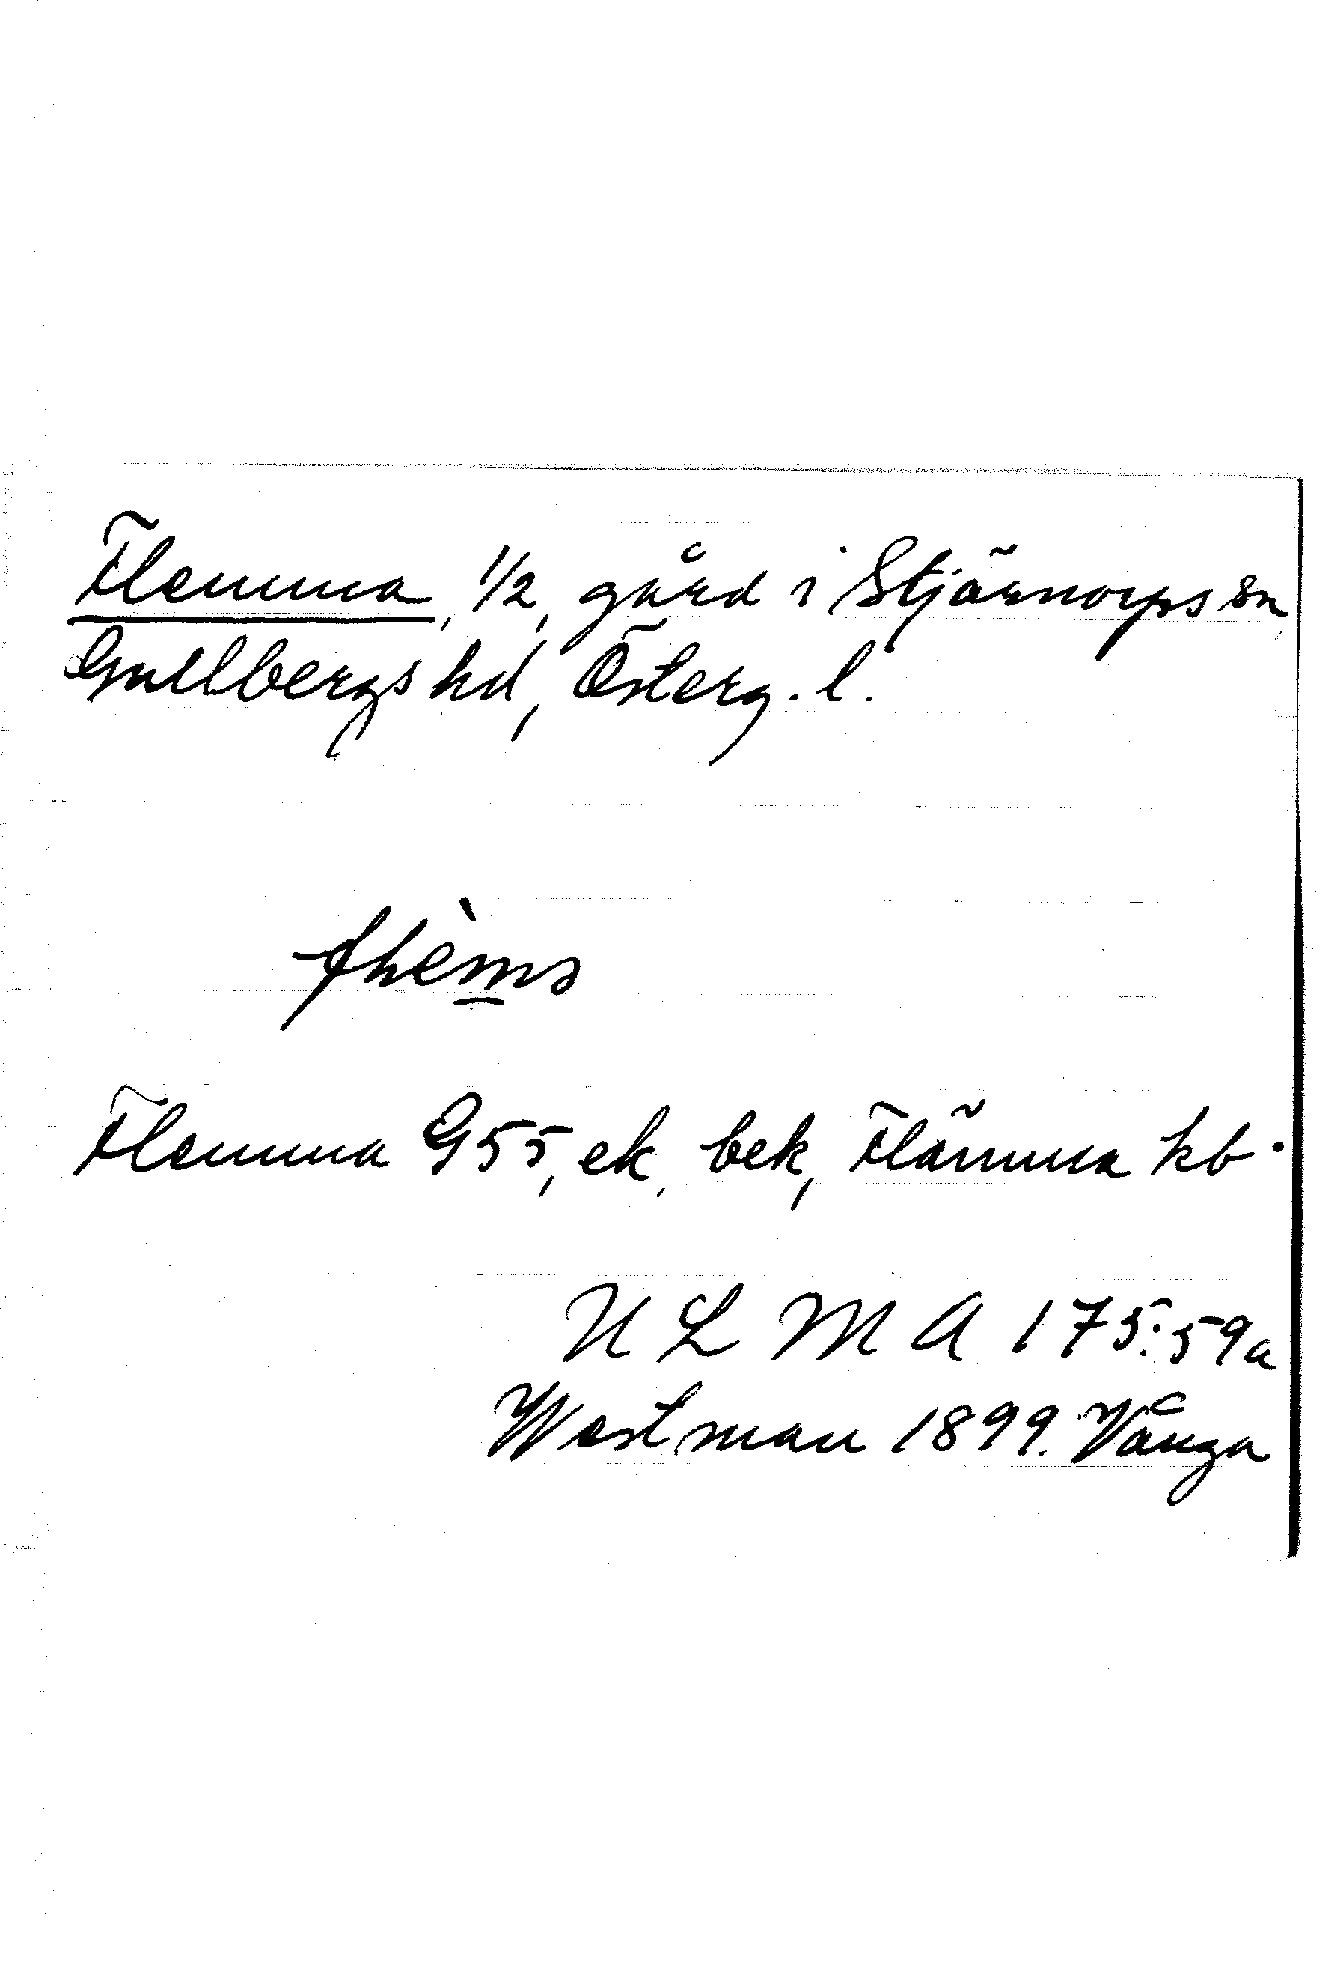 Flemma, 1/2, gård i Stjärnorps sn
Gullbergs hd, Österg. l.
Flemma G55, ek, bek, Flämma kb.
ULMA 175:59a
Westman 1899. Vånga